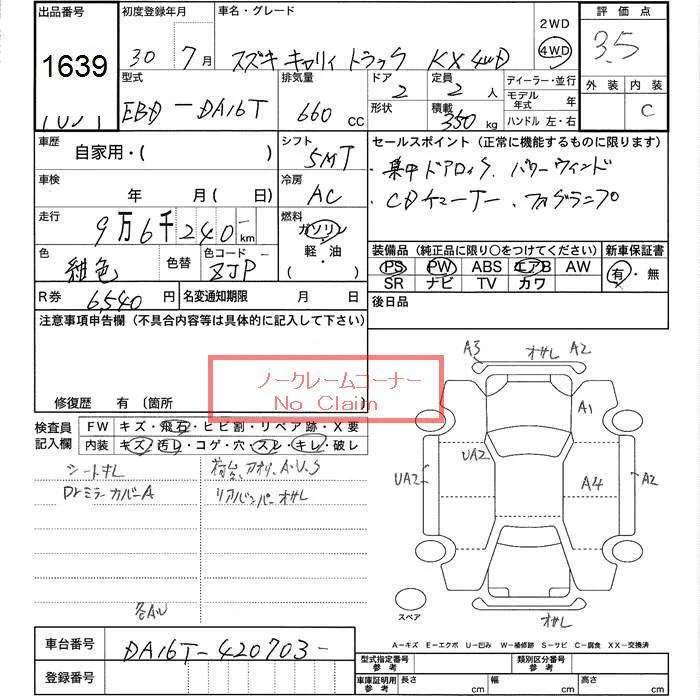 出品番号 初度登録年月 車名・グレード 2WD 評価点
1639 30 7月 スズキ キャリィ トラック KX 4WD 4WD 3.5
型式 排気量 ドア 定員 ディーラー・並行 外装 内装
EBD-DA16T 660 CC 2 2 人 モデル年式 年 C
形状 積載 350 kg ハンドル 左・右
車歴 自家用・( ) シフト 5MT セールスポイント(正常に機能するものに限ります)
・集中ドアロック、パワーウィンド
車検 年 月( 日) 冷房 AC ・CDチューナー、フォグランプ
走行 9万6千240km 燃料 ガソリン
軽・油
( )
装備品(純正品に限り○をつけてください) 新車保証書
色 紺色 色替 色コード ZJP PS PW ABS エアB AW 有・無
SR ナビ TV カワ
R券 6,540円 名変通知期限 月 日 後日品
注意事項申告欄(不具合内容等は具体的に記入して下さい)
ノークレームコーナー
No Claim
修復歴 有(箇所 )
検査員記入欄 FW キズ・飛石・ヒビ割・リペア跡・X要
内装 キズ・汚レ・コゲ・穴・スレ・キレ・破レ
シートキレ
Drミラーカバー A
荷台、アオリ、A・U・S
リアバンパー オサレ
各AU
A3 オサレ A2
A1
UA2
UA2 A4 A2
オサレ
スペア
A-キズ E-エクボ U-凹み W-補修跡 S-サビ C-腐食 XX-交換済
車台番号 DA16T-420703-
登録番号
型式指定番号 参考 類別区分番号 参考
車庫証明用 参考 長さ cm 幅 cm 高さ cm